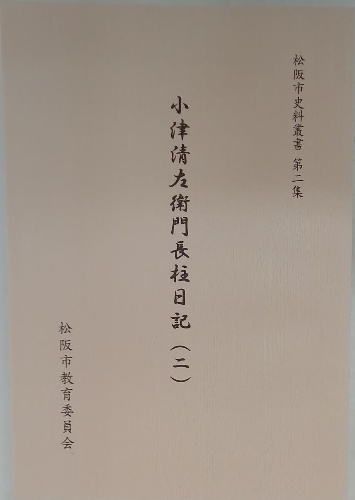 松阪市史料叢書 第二集
小津清左衛門長柱日記(二)
松阪市教育委員会